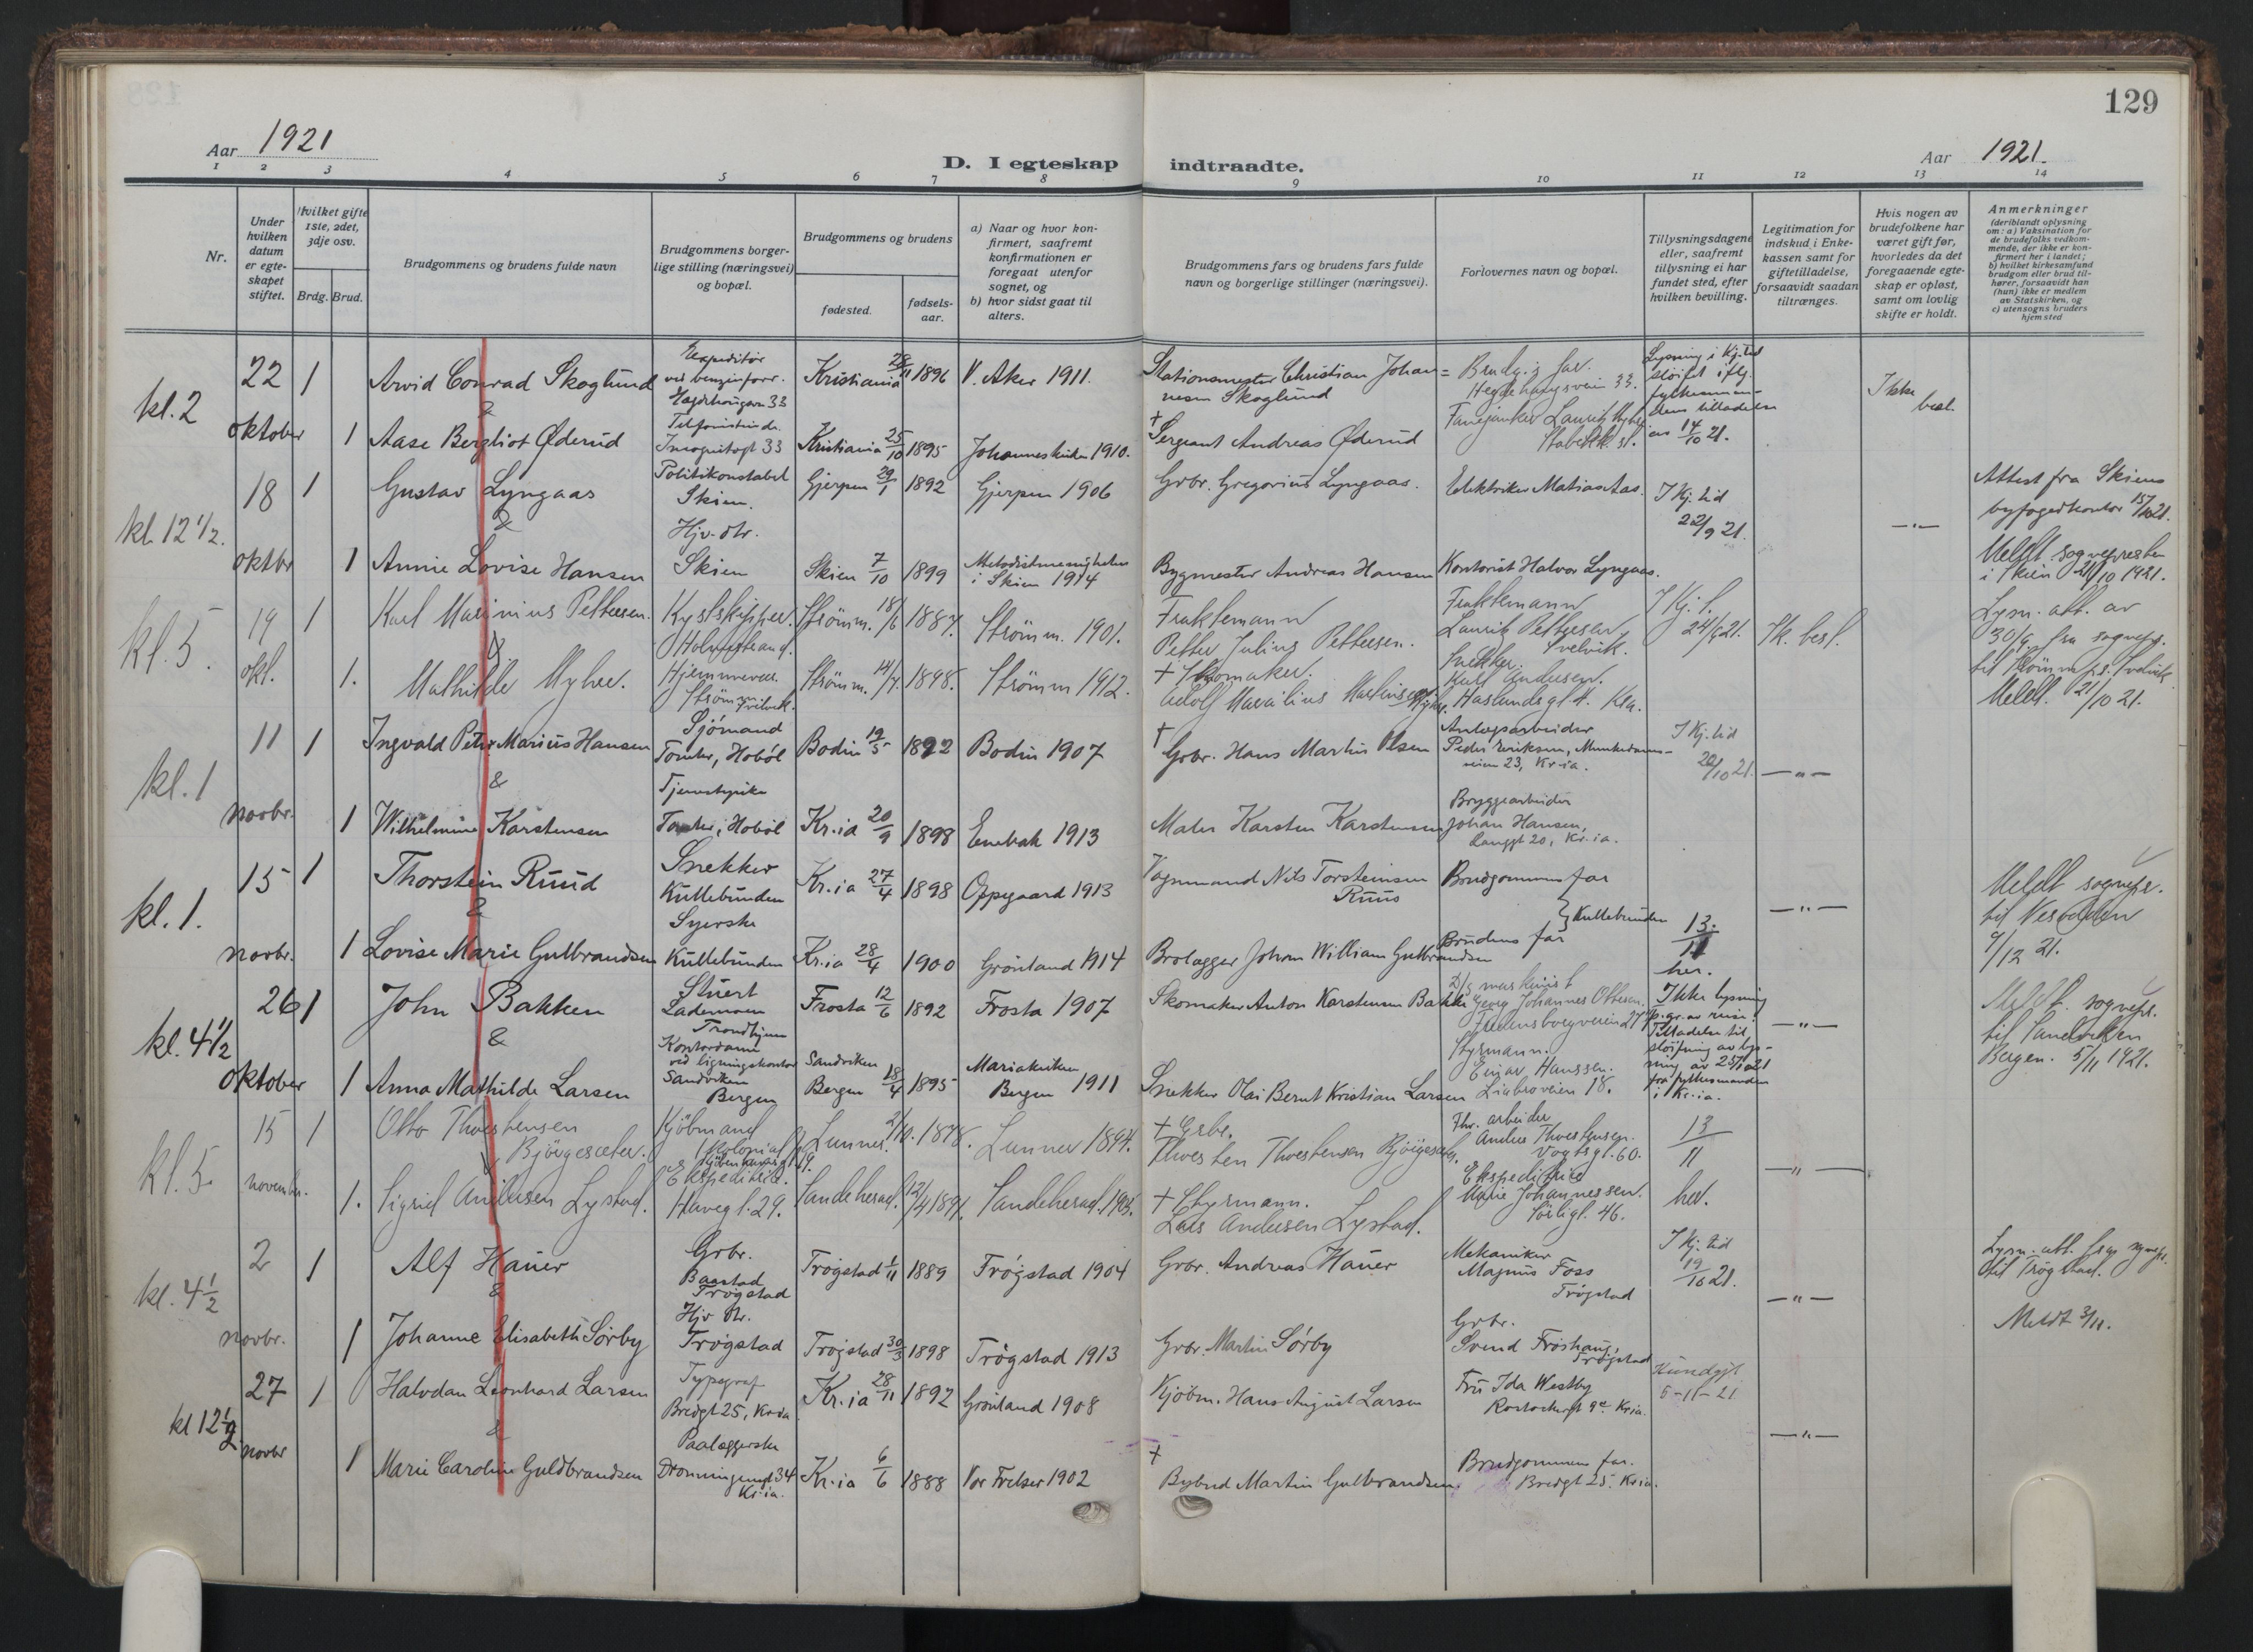 129
Aar 1921
D. I egteskap indtraadte.
Aar 1921.
1 2 3 4 5 6 7 8 9 10 11 12 13 14
Nr.
Under hvilken datum er egteskapet stiftet.
Hvilket gifte 1ste, 2det, 3dje osv.
Brdg. Brud.
Brudgommens og brudens fulde navn
Brudgommens borgerlige stilling (næringsvei) og bopæl.
Brudgommens og brudens
fødested.
fødselsaar.
a) Naar og hvor konfirmert, saafremt konfirmationen er foregaat utenfor sognet, og
b) hvor sidst gaat til alters.
Brudgommens fars og brudens fars fulde navn og borgerlige stillinger (næringsvei).
Forlovernes navn og bopæl.
Tillysningsdagene eller, saafremt tillysning ei har fundet sted, efter hvilken bevilling.
Legitimation for indskud i Enkekassen samt for giftetilladelse, forsaavidt saadan tiltrænges.
Hvis nogen av brudefolkene har været gift før, hvorledes da det foregaaende egteskap er opløst, samt om lovlig skifte er holdt.
Anmerkninger (deriblandt oplysning om: a) Vaksination for de brudefolks vedkommende, der ikke er konfirmert her i landet; b) hvilket kirkesamfund brudgom eller brud tilhører, forsaavidt han (hun) ikke er medlem av Statskirken, og c) utensogns bruders hjemsted
kl. 2
22 oktober
1 Arvid Conrad Skoglund
Expeditör ved benzinforr. 33
Kristiania 28/11 1896 V. Aker 1911.
Stationsmester Christian Johannesen Skoglund
Brudg.s far. Hegdehaugsveien 33.
Lysning i Kj. tid sløifet ifig. fylkesmandens tilladelse av 14/10 21.
Ikke besl.
&
1 Aase Bergliot Øderud
Telefonistinde Incognitogt 33
Kristiania 25/10 1895 Johanneskirken 1910.
† Sergeant Andreas Øderud
Fanejunker Lauritz Stabekk st.
kl. 12 1/2.
18 oktbr
1 Gustav Lyngaas
Politikonstabel Skien.
Gjerpen 29/1 1892 Gjerpen 1906
Grbr. Gregorius Lyngaas.
Elektriker Matias Aas.
I Kj. tid 22/9 21.
Attest fra Skiens byfogedkontor 15/10 21.
&
1 Annie Lovise Hansen
Hjv. dtr. Skien
Skien 7/10 1899 Metodistmenigheten i Skien 1914
Bygmester Andreas Hansen
Kontorist Halvor Lyngaas.
Meldt sognepresten i Skien 21/10 1921.
kl. 5.
19 okt.
1 Karl Marinius Pettersen.
Kystskipper. Holmestrand.
Strømm. 18/6 1887. Strømm. 1901.
Fraktemann Petter Julius Pettersen.
Fraktemann Lauritz Pettersen Svelvik.
I Kj. t. 24/9 21.
Sk. besl.
Lysn. att. av 30/9 fra sognepr. til Strømm ps. Svelvik
&
1. Mathilde Myhre.
Hjemmevær. Strømm Svelvik.
Strømm. 14/7. 1898. Strømm 1912.
† Skomaker. Adolf Martinsen Myhre.
Snekker. Karl Andersen. Haslunds gt. 4. Kra.
Meldt. 21/10 21.
kl. 1
11 novbr.
1 Ingvald Peter Marius Hansen
Sjømand Tomter, Hobøl
Bodin 19/5 1892 Bodin 1907
† Grbr. Hans Martin Olsen
Anlegsarbeider Peder Eriksen, Munkedamsveien 23, Kr.ia.
I Kj. tid 20/10 21.
&
1 Wilhelmine Karstensen
Tjenestepike Tomter, Hobøl
Kr.ia 20/9 1898 Enebak 1913
Maler Karsten Karstensen
Bryggearbeider Johan Hansen, Langgt 20, Kr.ia.
kl. 1.
15 novbr.
1 Thorstein Ruud
Snekker Kullebunden
Kr.ia 27/4 1898 Oppegaard 1913
Vognmand Nils Torsteinsen Ruus
Brudgommens far
Meldt sognepr. til Nesodden 9/12 21.
&
1 Lovise Marie Gulbrandsen
Syerske Kullebunden
Kr.ia 28/4 1900 Grønland 1914
Brolægger Johan William Gulbrandsen
Brudens far } Kullebunden
13/11 her.
kl. 4 1/2
26 oktober
1 John Bakken
Stuert Lademoen Trondhjem
Frosta 12/6 1892 Frosta 1907
Skomaker Anton Karstensen Bakken
D/s maskinist Georg Johannes Ottesen. Fredensborgveien 27
Ikke lysning p. gr. av reise. Tilladelse til sløifning av lysning av 25/10 21 fra fylkesmanden i Kr.ia.
Meldt. sognepr. til Sandviken Bergen. 5/11 1921.
&
1 Anna Mathilde Larsen
Kontordame ved ligningskontor Sandviken Bergen
Sandviken Bergen 18/4 1895 Mariakirken Bergen 1911
Snekker Olai Bernt Kristian Larsen
Styrmann. Einar Hanssen. Liabroveien 18.
kl. 5.
15 november.
1 Otto Thorstensen Bjørgesæter.
Kjøbmand (kolonial)
Lunner. 2/10. 1878. Lunner 1894.
† Grbr. Thorsten Thorstensen Bjørgesæter.
Fbr. arbeider Anders Thorstensen. Vogtsgt. 60.
13/11 her.
1. Sigrid Andersen Lystad.
Ekspeditrice. Havegt. 29.
Sandeherad. 12/4 1891. Sandeherad.
† Styrmann. Lars Andersen Lystad.
Ekspeditrice Marie Johannessen. Sørligt. 46.
kl. 4 1/2
2 novbr.
1 Alf Hauer
Grbr. Baastad Trøgstad
Trøgstad 1/11 1889 Trøgstad 1904
Grbr. Andreas Hauer
Mekaniker Magnus Foss Trøgstad
I Kj. tid 19/10 21.
Lysn. att. fra sognepr. til Trøgstad.
&
1 Johanne Elisabeth Sørby
Hjv dtr. Trøgstad
Trøgstad 30/3 1898 Trøgstad 1913
Grbr. Martin Sørby
Grbr. Svend Frøshaug, Trøgstad
Meldt 3/11.
kl 12 1/2
27 novbr
1 Halvdan Leonhard Larsen
Typograf Bredgt 25, Kr.ia
Kr.ia 28/11 1892 Grønland 1908
Kjøbm. Hans August Larsen
Fru Ida Westby Rostockergt 9 Kr.ia.
Kundgj. 6-11-21
&
1 Marie Caroline Guldbrandsen
Paalæggerske Dronningensgt 34 Kr.ia.
Kr.ia 6/6 1888 Vor Frelser 1902
† Bybud Martin Gulbrandsen.
Brudgommens far. Bredgt 25. Kr.ia.